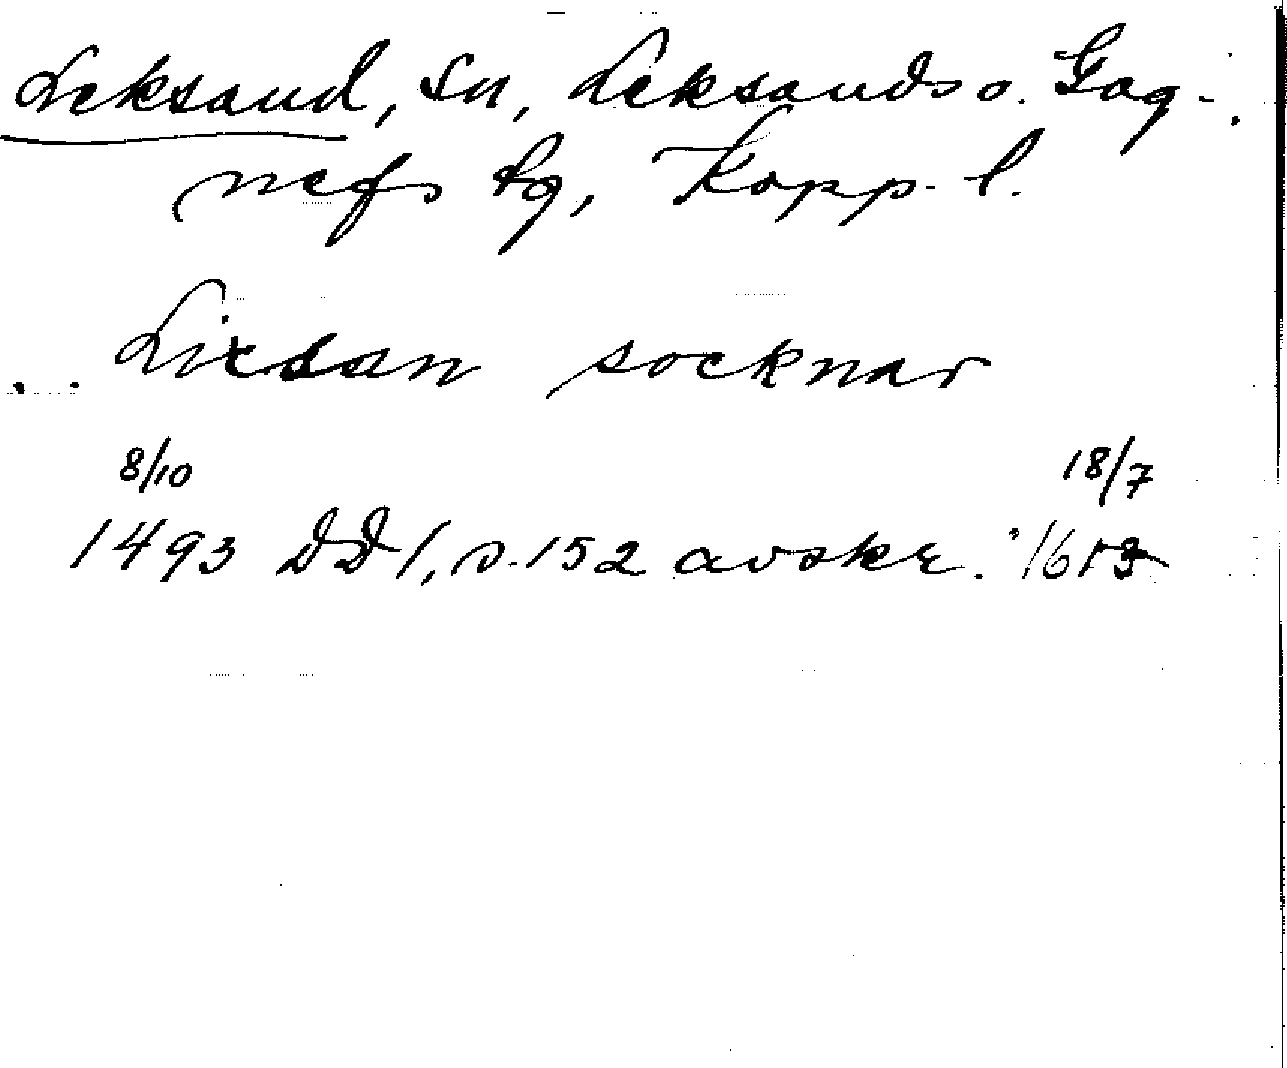 Leksand, Sn, Leksands o. Gag-
nefs tg, Kopp. l.
Lixsan socknar
8/10 18/7
1493 DD1, s. 152 avskr. 1613